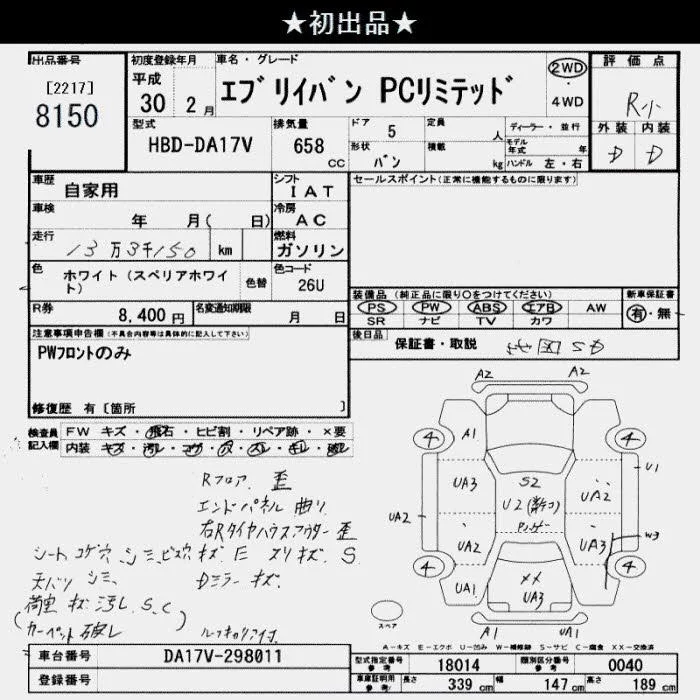 ★初出品★
出品番号
[2217]
8150
初度登録年月
平成
30 2月
車名・グレード
エブリイバン PCリミテッド
2WD
4WD
評価点
R小
外装 内装
D D
型式
HBD-DA17V
排気量
658
CC
ドア 5
形状 バン
定員 人
積載 kg
ディーラー・並行
モデル年式 年
ハンドル 左・右
車歴
自家用
シフト
IAT
セールスポイント(正常に機能するものに限ります)
車検
年 月( 日)
冷房
AC
走行
13万3千150 km
燃料
ガソリン
色
ホワイト(スペリアホワイト)
色替
色コード
26U
R券
8,400円
名変通知期限
月 日
装備品(純正品に限り○をつけてください)
PS PW ABS エアB AW
SR ナビ TV カワ
新車保証書
有・無
後日品
保証書・取説
注意事項申告欄(不具合内容等は具体的に記入して下さい)
PWフロントのみ
修復歴 有[箇所 ]
検査員記入欄
FW キズ・飛石・ヒビ割・リペア跡・×要
内装
Rフロア 歪
エンドパネル 曲り
右Rタイヤハウスアウター 歪
シート コゲ穴 シミ ビス穴 キズ E スリキズ S
天バリ シミ
Dミラー キズ
荷室 キズ 汚レ S.C
(カーペット 破レ
A2
A2
4
A1
4
UA3
S2
UA2
U1
UA2
U2
UA2
UA3
W3
4
UA1
XX
UA3
4
スペア
A1
UA1
A-キズ E-エクボ U-凹み W-補修跡 S-サビ C-腐食 XX-交換済
車台番号
DA17V-298011
登録番号
型式指定番号
参考
18014
類別区分番号
参考
0040
車庫証明用
参考
長さ 339 cm
幅 147 cm
高さ 189 cm